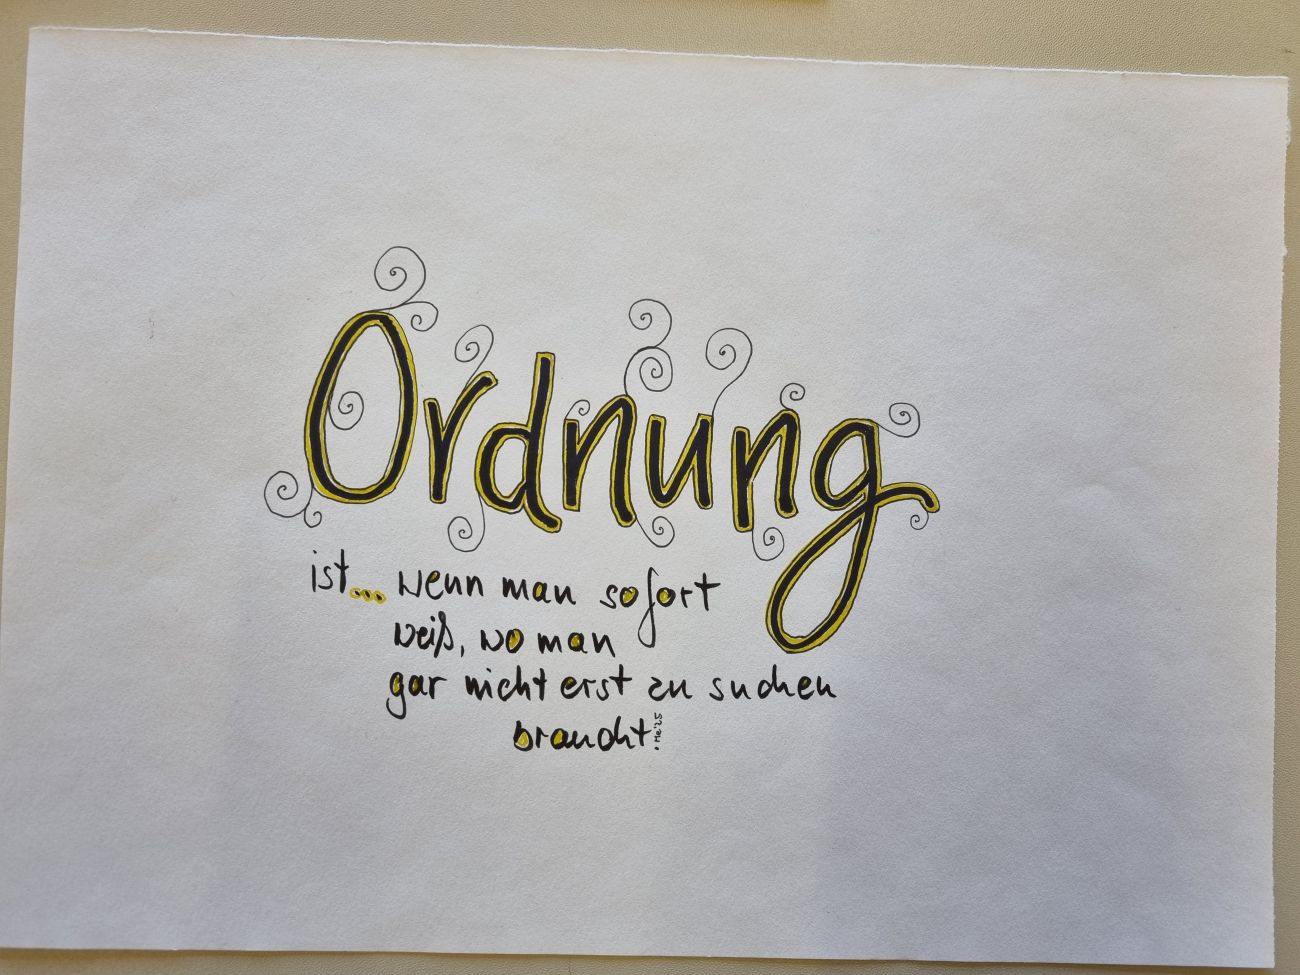 Ordnung
ist... wenn man sofort
weiß, wo man
gar nicht erst zu suchen
braucht